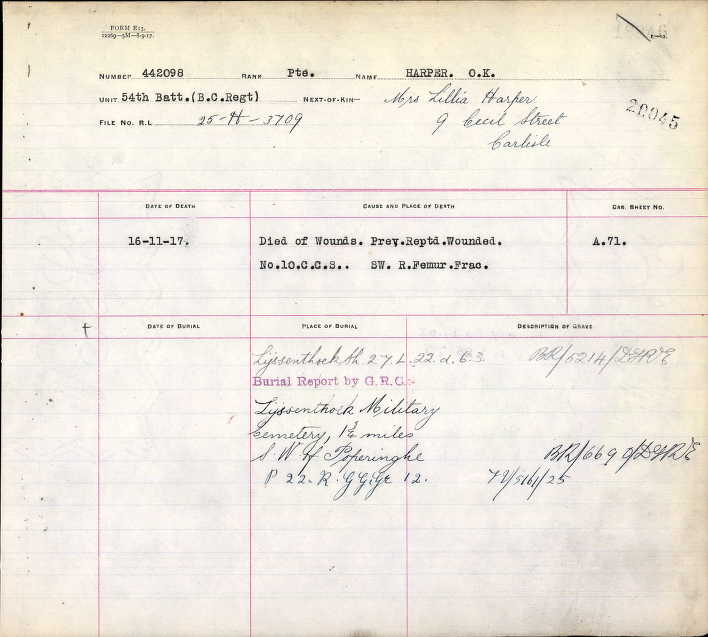 FORM E13.
12269—5M—8-9-17.
NUMBER 442098 RANK Pte. NAME HARPER. O.K.
UNIT 54th Batt.(B.C.Regt) NEXT-OF-KIN— Mrs Lillia Harper
FILE NO. R.L. 25-H-3709 9 Cecil Street
Carlisle
20045
DATE OF DEATH CAUSE AND PLACE OF DEATH CAS. SHEET NO.
16-11-17. Died of Wounds. Prev.Reptd.Wounded. A.71.
No.10.C.C.S.. SW. R.Femur.Frac.
DATE OF BURIAL PLACE OF BURIAL DESCRIPTION OF GRAVE
Lijssenthoek Sh 27.L.22.d.6.3. BR/5214/DGR&E
Burial Report by G.R.C:-
Lijssenthoek Military
Cemetery, 1¾ miles
S.W. of Poperinghe BR/6690/DGR&E
P 22. R. Ge 12.